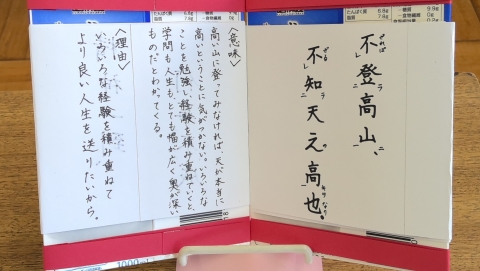 不登高山、
不知天之高也。
〈意味〉
高い山に登ってみなければ、天が本当に
高いということに気がつかない。いろいろな
ことを勉強し経験を積み重ねていくと、
学問も人生もとても幅が広く奥が深い
ものだとわかってくる。
〈理由〉
いろいろな経験を積み重ねて
より良い人生を送りたいから。